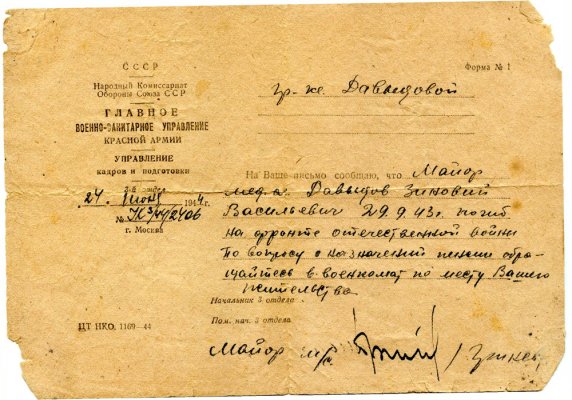 СССР
Народный Комиссариат
Обороны Союза ССР
ГЛАВНОЕ
ВОЕННО-САНИТАРНОЕ УПРАВЛЕНИЕ
КРАСНОЙ АРМИИ
УПРАВЛЕНИЕ
кадров и подготовки
3-й отдел
24 июня 1944 г.
№
г. Москва
ЦТ НКО. 1169—44
Форма № 1
гр-ке Давыдовой
На Ваше письмо сообщаю, что Майор
Давыдов Зиновий
Васильевич 29.9.43г. погиб
на фронте отечественной войны
По вопросу о назначении пенсии обра-
щайтесь в военкомат по месту Вашего
жительства
Начальник 3 отдела
Пом. нач. 3 отдела
Майор м/с